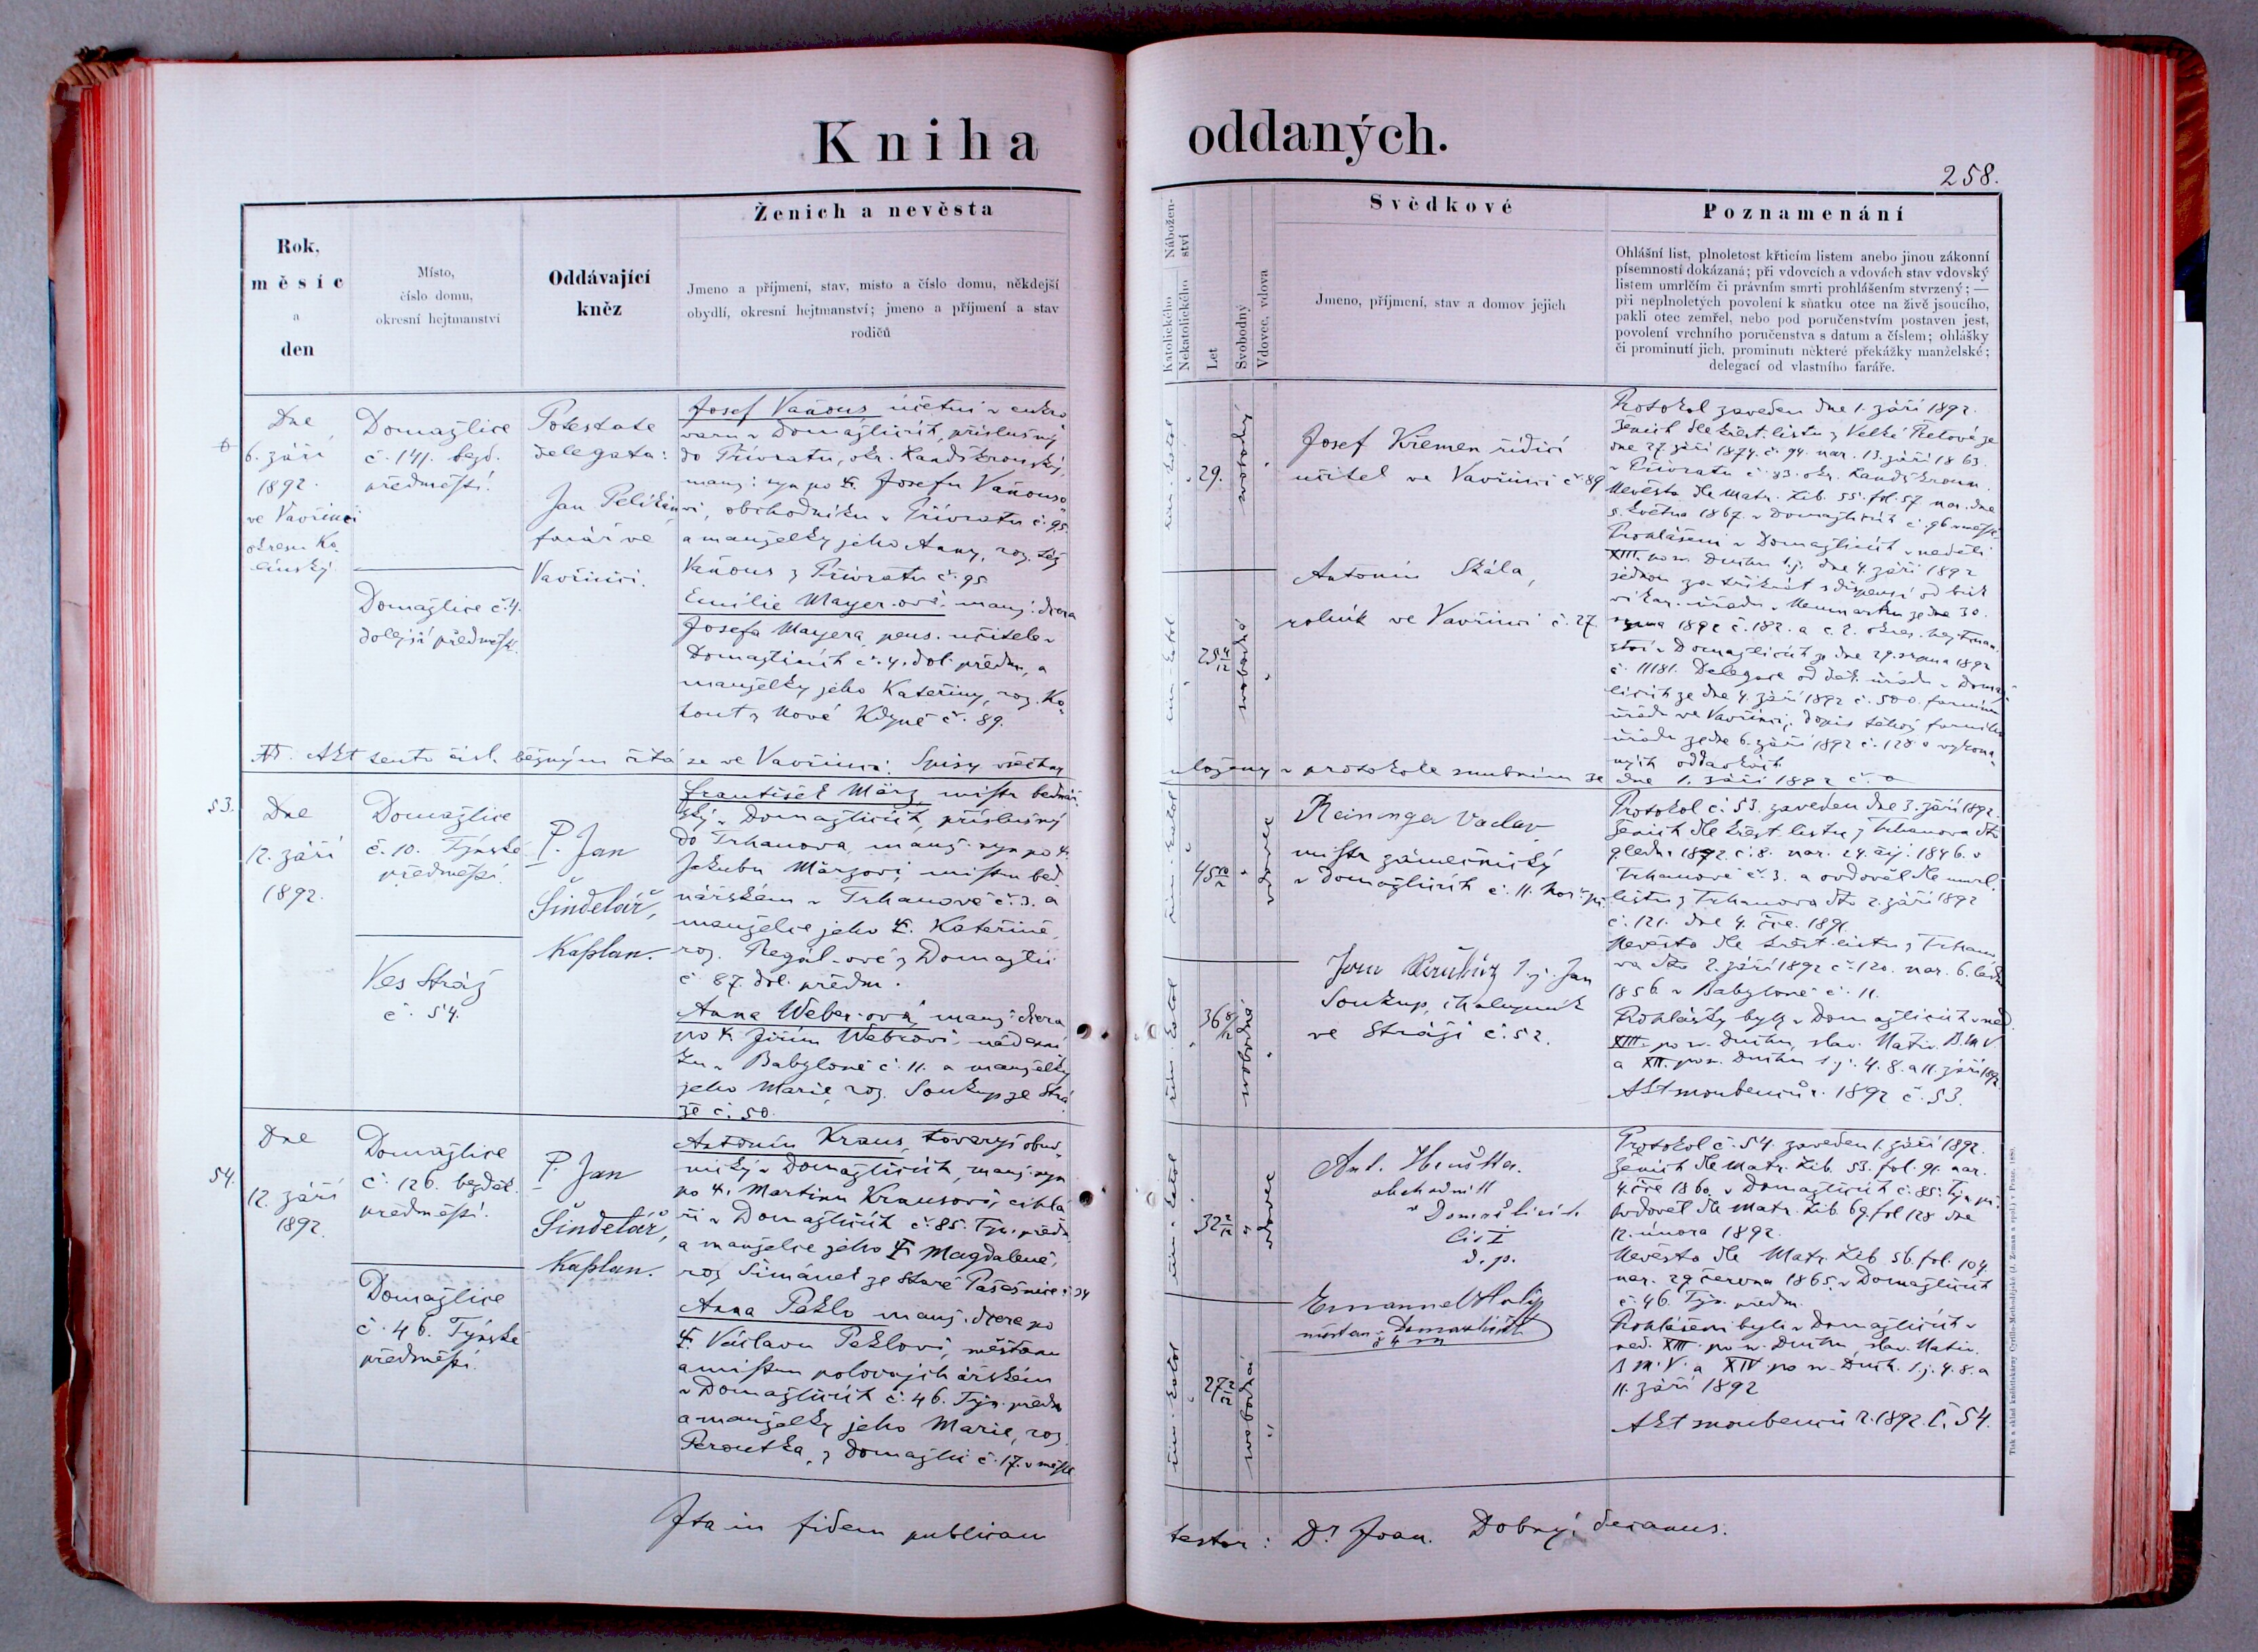 Kniha oddaných.
258.
Rok,
měsíc
a
den
Místo,
číslo domu,
okresní hejtmanství
Oddávající
kněz
Ženich a nevěsta
Jmeno a příjmení, stav, místo a číslo domu, někdejší
obydlí, okresní hejtmanství; jmeno a příjmení a stav
rodičů
Nábožen-
ství
Katolického
Nekatolického
Let
Svobodný
Vdovec, vdova
Svědkové
Jmeno, příjmení, stav a domov jejich
Poznamenání
Ohlášní list, plnoletost křticím listem anebo jinou zákonní
písemností dokázaná; při vdovcích a vdovách stav vdovský
listem umrlčím či právním smrti prohlášením stvrzený; —
při neplnoletých povolení k sňatku otce na živě jsoucího,
pakli otec zemřel, nebo pod poručenstvím postaven jest,
povolení vrchního poručenstva s datum a číslem; ohlášky
či prominutí jich, prominutí některé překážky manželské;
delegací od vlastního faráře.
Dne
6. září
1892.
ve Vavřinci
okresu Ko-
línský
Domažlice
č. 141. bezd.
předměstí.
Domažlice č. 4.
dolejší předměstí.
Potestate
delegata:
Jan Pelikán
farář ve
Vavřinci.
Josef Vaňous účetní v cukro
varu v Domažlicích, příslušný
do Přívratu, okr. Landškronský,
manž: syn po Josefu Vaňouso
vi, obchodníku v Přívratu č. 95.
a manželky jeho Anny, roz. též
Vaňous z Přívratu č. 95
Emilie Mayer-ová, manž: dcera
Josefa Mayera, pens. učitele v
Domažlicích č. 4. dol. předm., a
manželky jeho Kateřiny, roz. Ko-
hout z Nové Kdyně č. 89.
řím. katol
29.
svobodný
25 4/12
svobodná
Josef Křemen řídící
učitel ve Vavřinci č. 89
Antonín Skála,
rolník ve Vavřinci č. 27
Protokol zaveden dne 1. září 1892.
Ženich dle křest. listu z Velké Třebové ze
dne 27. září 1874. č. 94. nar. 13. září 1863.
v Přívratu č. 83. okr. Landškroun.
Nevěsta dle Matr. Lib. 55. fol. 57. nar. dne
5. května 1867. v Domažlicích č. 96 v městě.
Prohlášeni v Domažlicích v neděli
XIII. po sv. Duchu t.j. dne 4. září 1892
jednou za třikrát s dispensí od bisk
vikar. úřadu v Neumarku ze dne 30.
srpna 1892 č. 182. a c. k. okres. hejtman-
ství v Domažlicích ze dne 29. srpna 1892
č. 11181. Delegace od děk. úřadu v Domaž-
licích ze dne 4. září 1892 č. 500. farnímu
úřadu ve Vavřinci; dopis téhož farního
úřadu ze dne 6. září 1892 č. 128 o vykona-
ných oddavkách.
NB. Akt tento čísl. běžným čítá se ve Vavřinci. Spisy všechny
uloženy v protokole snubním ze dne 1. září 1892 č. 0
53.
Dne
12. září
1892.
Domažlice
č. 10. Týnské
předměstí.
Ves Stráž
č. 54.
P. Jan
Šindelář,
Kaplan.
František März, mistr bednář-
ský v Domažlicích, příslušný
do Trhanova, manž. syn po
Jakubu Märzovi, mistru bed-
nářském v Trhanově č. 3. a
manželce jeho Kateřině,
roz. Regál-ové z Domažlic
č. 87. dol. předm.
Anna Weber-ová, manž: dcera
po Jiřím Webrovi, nádenní
ku v Babyloně č. 11. a manželky
jeho Marie, roz. Soukup ze Strá
že č. 50.
řím. katol
45 10/12
vdovec
36 8/12
svobodná
Reininger Vaclav
mistr zámečnický
v Domažlicích č. 11. Hoř. př.
Jan Soukup, chalupník
ve Stráži č. 52.
Protokol č. 53. zaveden dne 3. září 1892.
Ženich dle křest. listu z Trhanova dto
9. ledn. 1892. č. 8. nar. 24. říj. 1846. v
Trhanově č. 3. a ovdověl dle umrl.
listu z Trhanova dto 2. září 1892
č. 121. dne 4. čce. 1891.
Nevěsta dle křest. listu z Trhano
va dto 2. září 1892 č. 120. nar. 6. ledn
1856. v Babyloně č. 11.
Prohlášky byly v Domažlicích v ned.
XIII. po sv. Duchu, slav. Nativ. B.M.V.
a XIV. po sv. Duchu t.j. 4. 8. a 11. září 1892.
Akt snoubenců r. 1892 č. 53.
54.
Dne
12. září
1892.
Domažlice
č. 126. bezděk.
předměstí.
Domažlice
č. 46. Týnské
předměstí.
P. Jan
Šindelář,
Kaplan.
Antonín Kraus, tovaryš obuv-
nický v Domažlicích, manž. syn
po Martinu Krausovi, cihlá
ři v Domažlicích č. 85. Týn. předm
a manželce jeho Magdaleně,
roz. Šimánek ze Staré Pasečnice č. 24
Anna Peklo manž. dcera po
Václavu Peklovi, měšťanu
a mistru
v Domažlicích č. 46. Týn. předm
a manželky jeho Marie, roz.
Peroutka, z Domažlic č. 17. v městě
řím. katol
32 2/12
vdovec
27 2/12
svobodná
Ant. Hruška.
obchodník
v Domažlicích
d. p.
Emanuel Holý
měšťan v Domažlicích
Protokol č. 54. zaveden 1. září 1892.
Ženich dle Matr. Lib. 53. fol. 91. nar.
4. čce 1860. v Domažlicích č. 85. Týn. př.
ovdověl dle Matr. Lib. 69. fol 128 dne
12. února 1892.
Nevěsta dle Matr. Lib 56. fol. 104.
nar. 29 června 1865. v Domažlicích
č. 46. Týn. předm.
Prohlášeni byli v Domažlicích v
ned. XIII. po sv. Duchu, slav. Nativ.
B. M. V. a XIV. po sv. Duch. t.j. 4. 8. a
11. září 1892
Akt snoubenců r. 1892. č. 54.
Ita in fidem publicam testor: Dr Joan. Dobrý, decanus.
Tisk a sklad knihtiskárny Cyrillo-Methodějské (J. Zeman a spol.) v Praze. 1889.